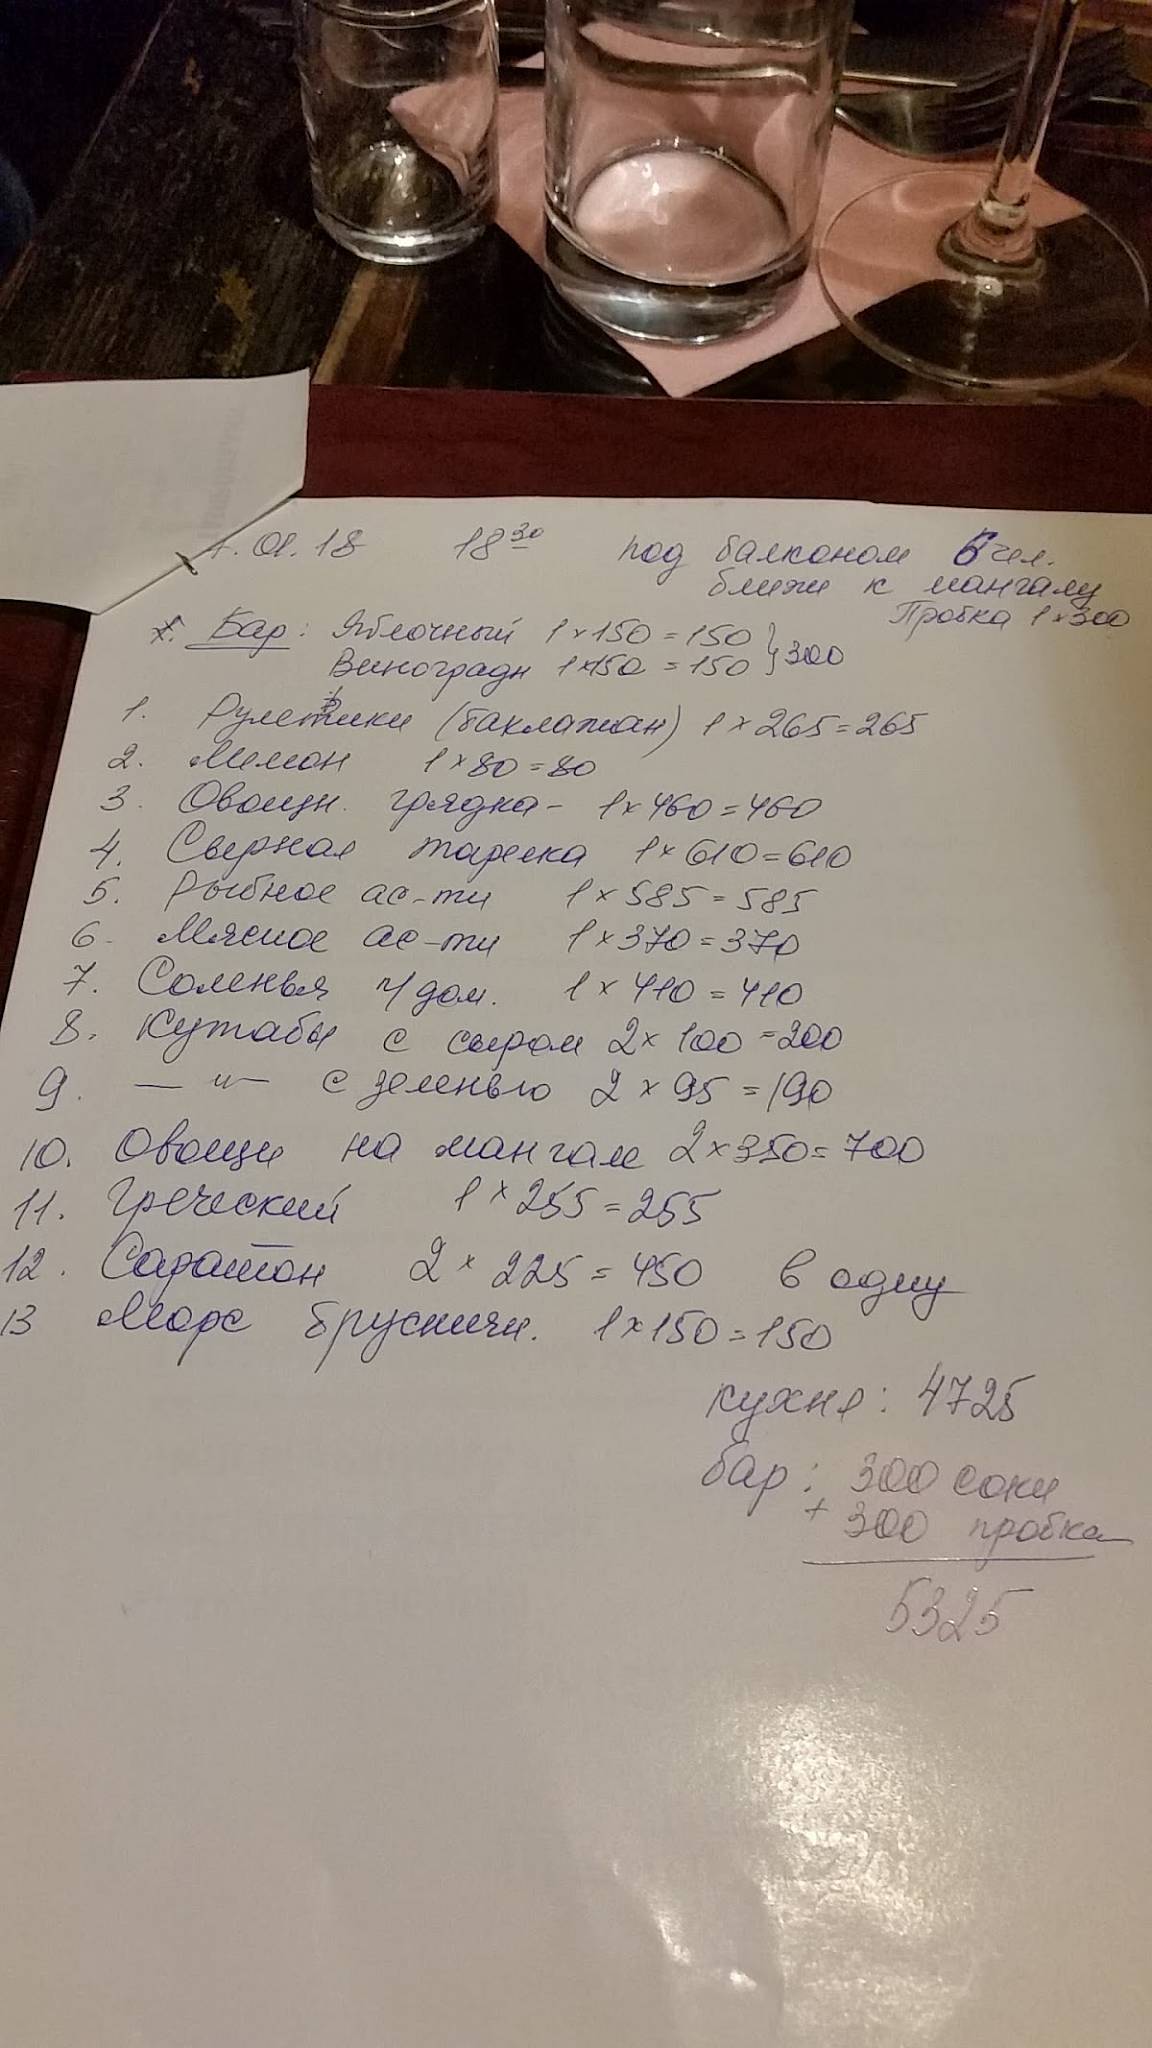 .01.18 18 30 под балконом 6 чел.
ближе к мангалу
Пробка 1×300
Бар: Яблочный 1×150=150 } 300
Виноградн 1×150=150
1. Рулетики (баклажан) 1×265=265
2. Лимон 1×80=80
3. Овощн. грядка- 1×460=460
4. Сырная тарелка 1×610=610
5. Рыбное ас-ти 1×585=585
6. Мясное ас-ти 1×370=370
7. Соленья дом. 1×410=410
8. Кутабы с сыром 2×100=200
9. —"— с зеленью 2×95=190
10. Овощи на мангале 2×350=700
11. Греческий 1×255=255
12. Саратон 2×225=450 в одну
13 Морс бруснични. 1×150=150
кухня: 4725
бар: 300 соки
+ 300 пробка
5325